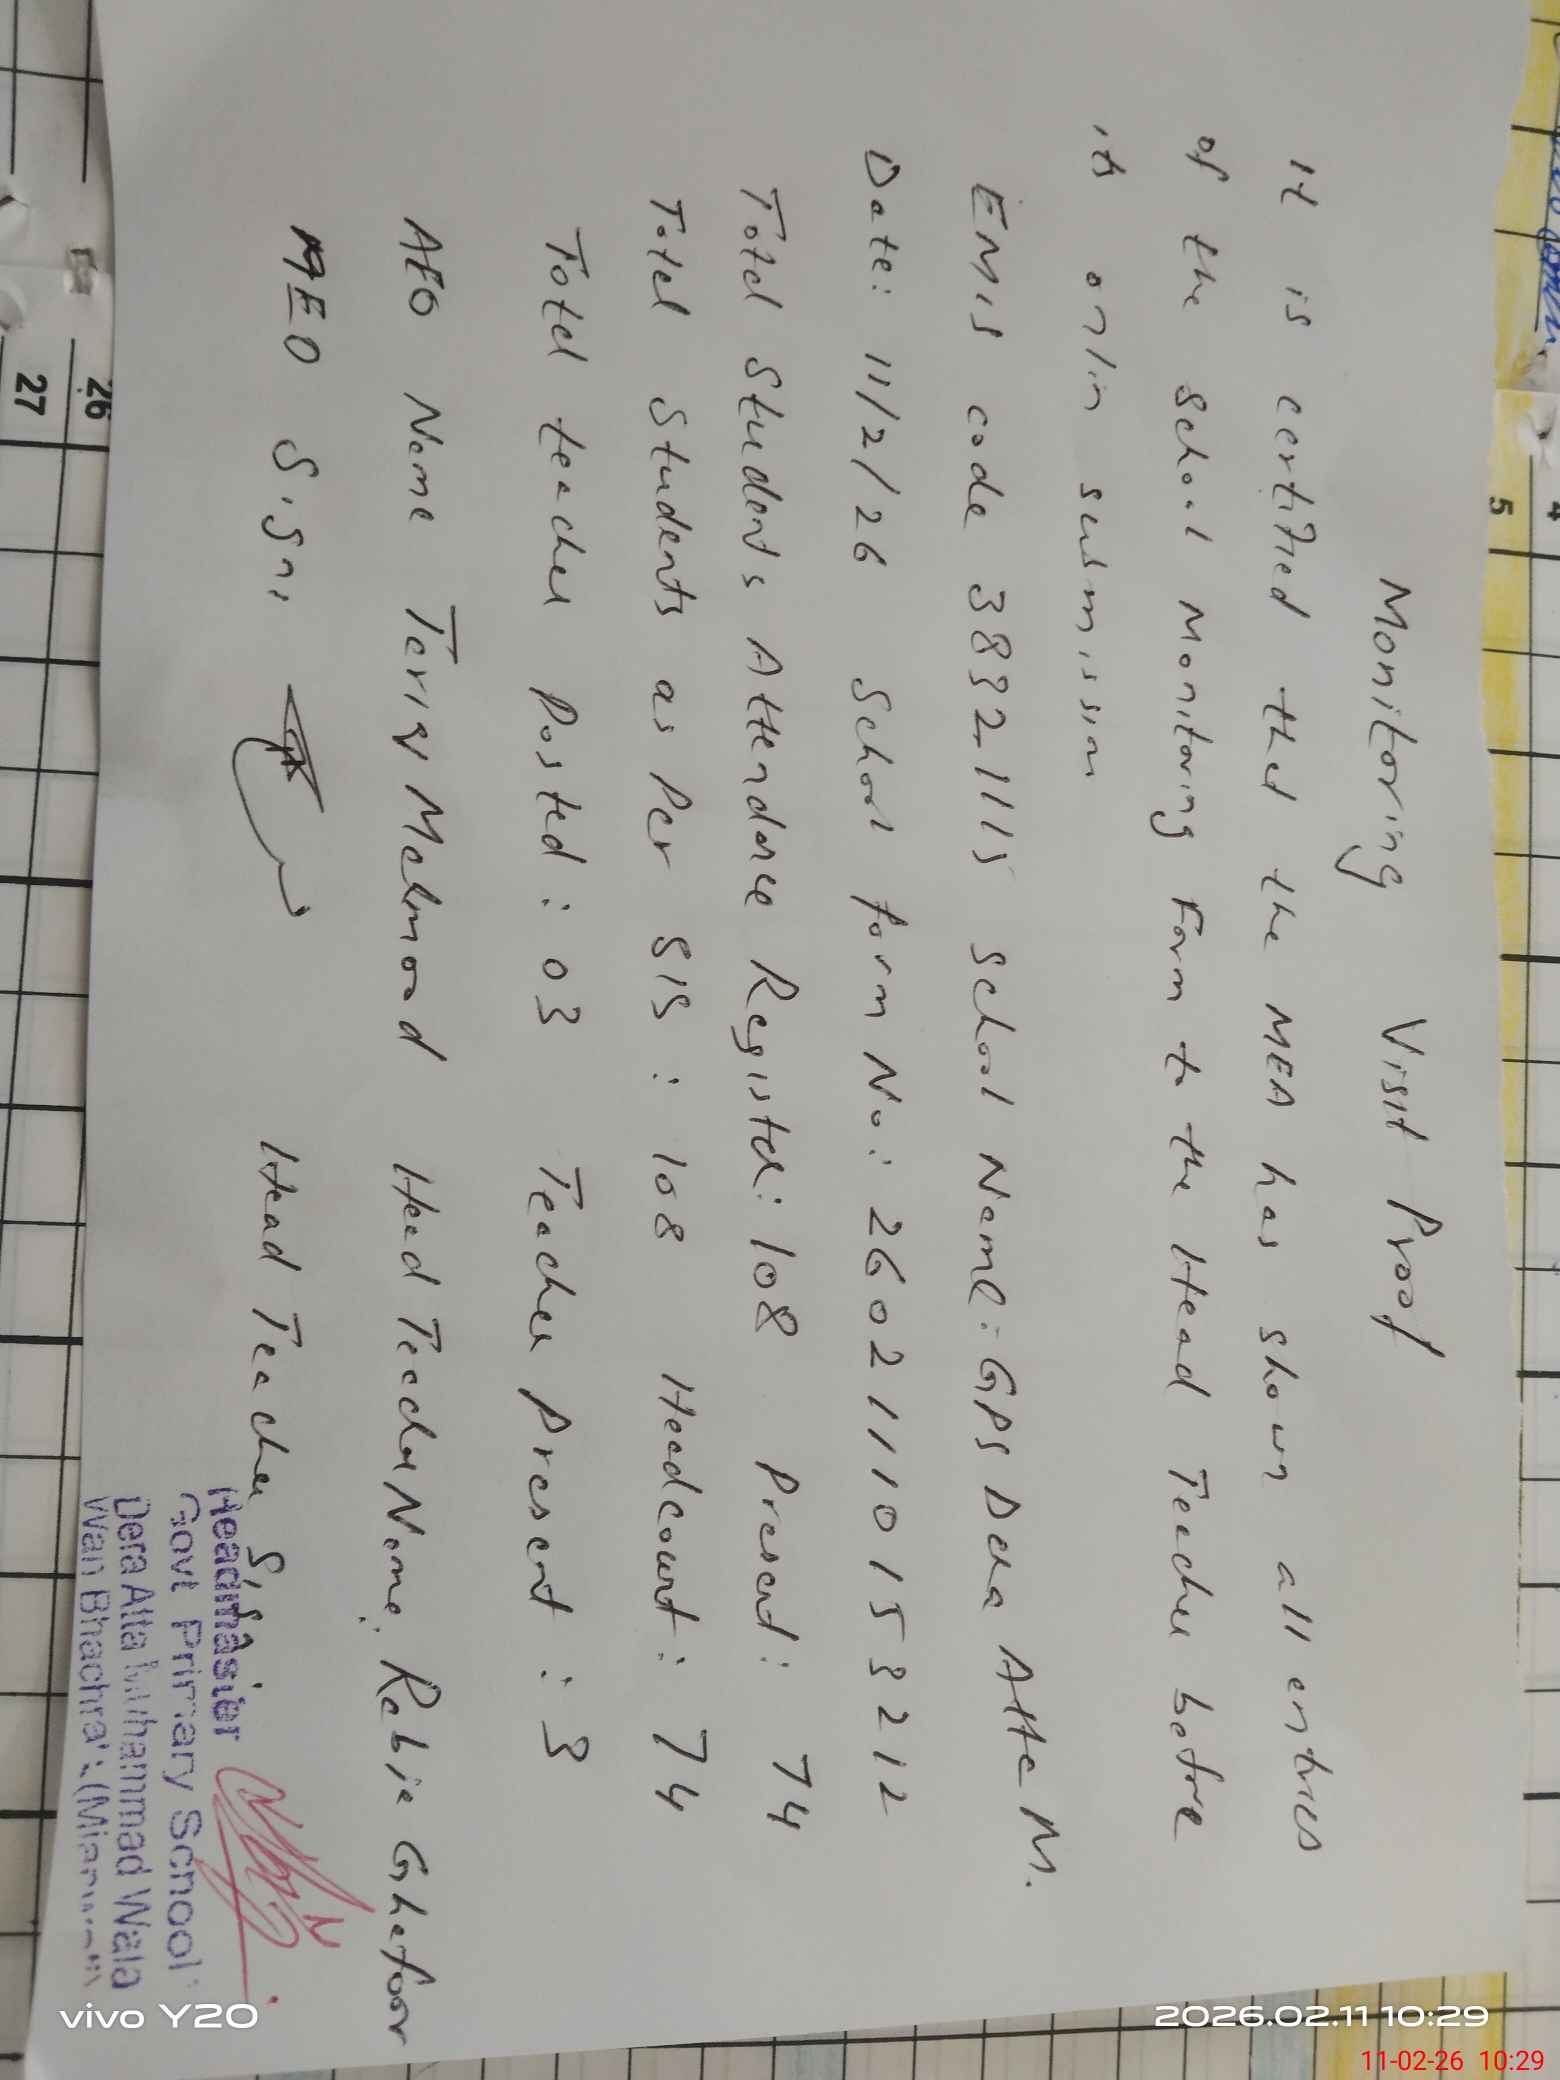 Monitoring Visit Proof
It is certified that the MEA has shown all entries
of the School Monitoring Form to the Head Teacher before
its onlin submission
EMIS code 38321115 School Name: GPS Dera Atta M.
Date: 11/2/26 School form No: 26021110153212
Total Students Attendance Register: 108 Present: 74
Total Students as Per SIS: 108 Headcount: 74
Total teacher Posted: 03 Teacher Present: 3
AEO Name Tariq Mehmood Head Teacher Name: Rabia Ghafoor
AEO Sign: Head Teacher Sign:
Headmaster
Govt Primary School
Dera Atta Muhammad Wala
Wan Bhachra
26
27
4
5
vivo Y20
2026.02.11 10:29
11-02-26 10:29